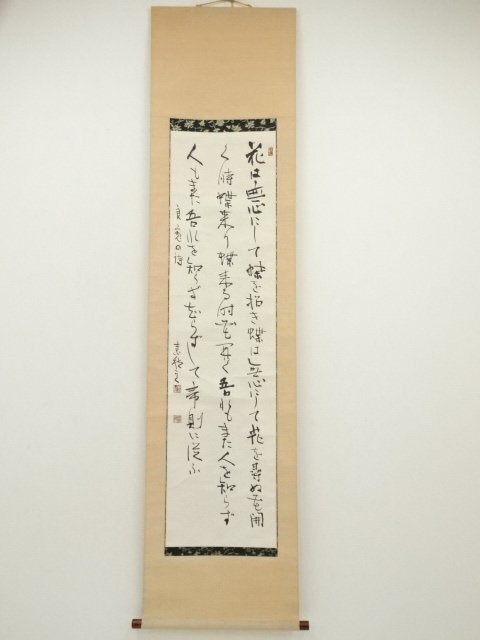 花は無心にして蝶を招き蝶は無心にして花を尋ぬ花開
く時蝶来り蝶来る時花開く吾れもまた人を知らず
人もまた吾れを知らず知らずして帝則に従ふ
良寛の詩